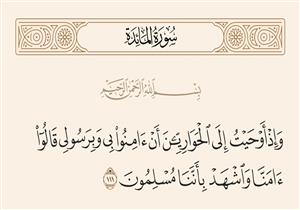 سُورَةُ المَائِدَةِ
بِسْمِ اللَّهِ الرَّحْمَٰنِ الرَّحِيمِ
وَإِذْ أَوْحَيْتُ إِلَى الْحَوَارِيِّـۧنَ أَنْ ءَامِنُوا۟ بِى وَبِرَسُولِى قَالُوٓا۟
ءَامَنَّا وَٱشْهَدْ بِأَنَّنَا مُسْلِمُونَ ١١١